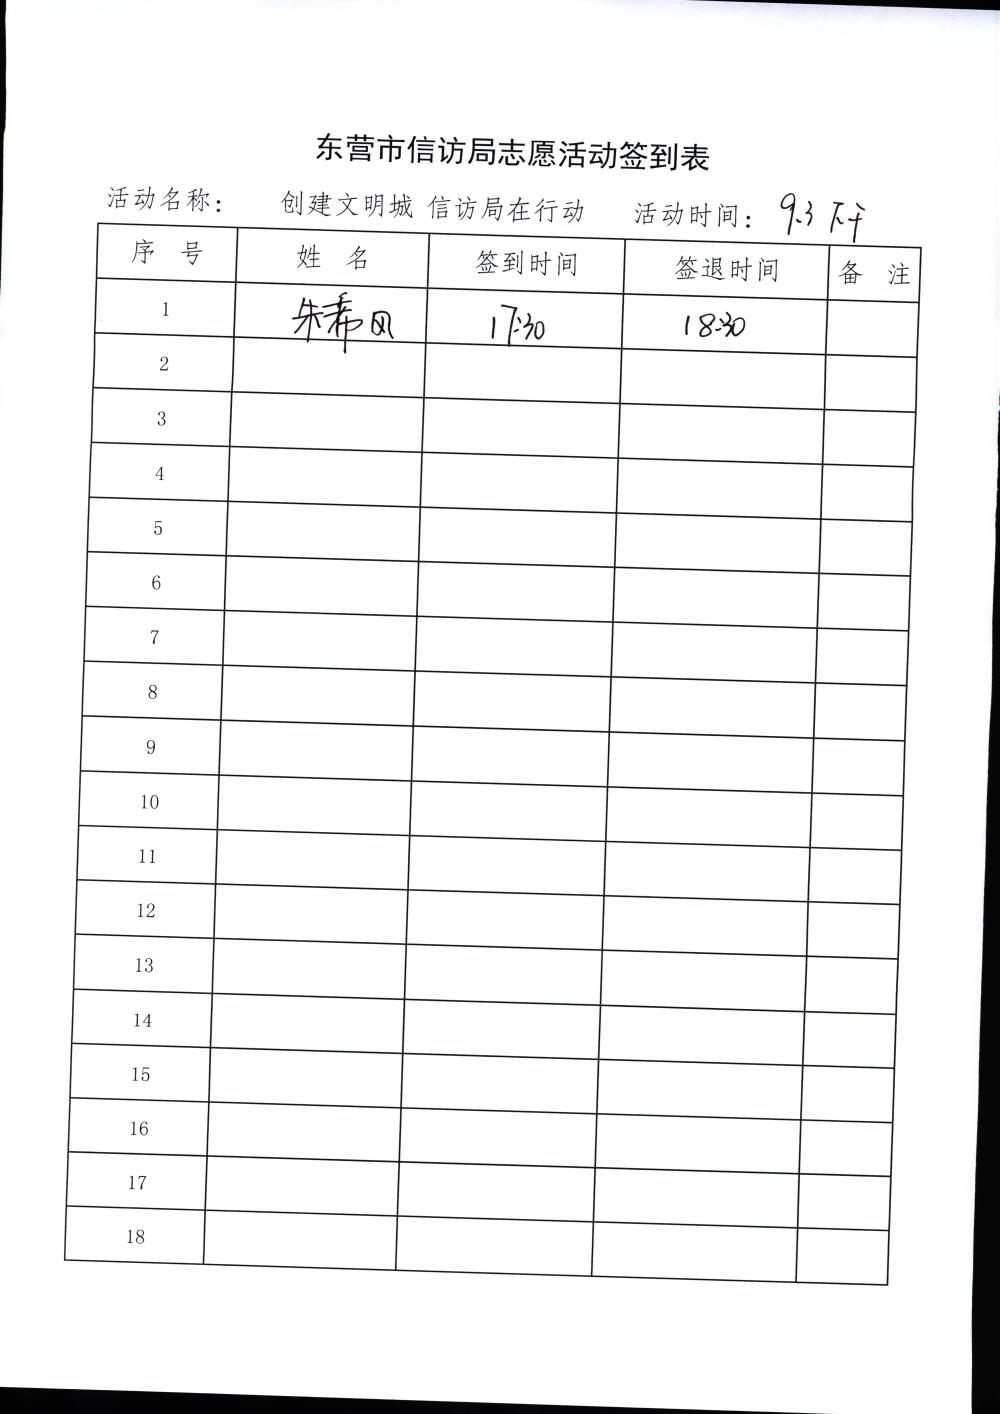 东营市信访局志愿活动签到表
活动名称： 创建文明城 信访局在行动 活动时间：9.3 下午
序 号 姓 名 签到时间 签退时间 备 注
1 朱希凤 17:30 18:30
2
3
4
5
6
7
8
9
10
11
12
13
14
15
16
17
18